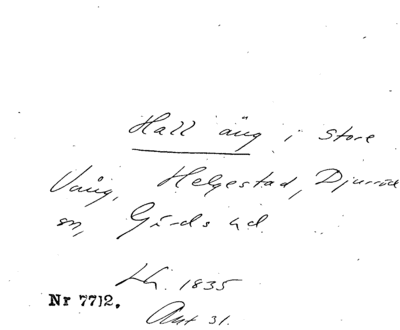 Hall äng i Store
Vång, Helgestad, Djurröd
sn, Gärds hd.
LSk. 1835
Nr 7712.
Akt 31.